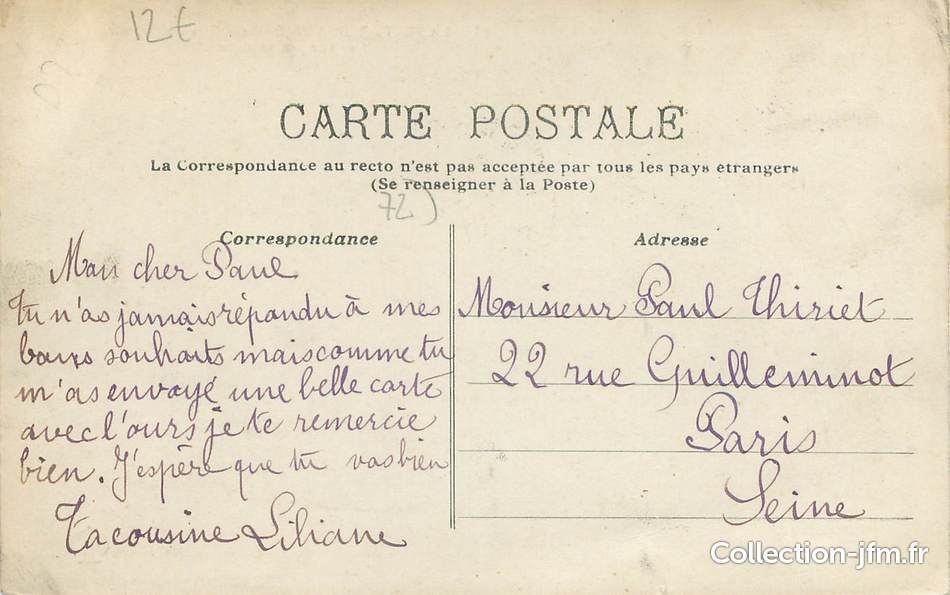 12€
CARTE POSTALE
La Correspondance au recto n'est pas acceptée par tous les pays étrangers
(Se renseigner à la Poste)
72)
Correspondance
Mon cher Paul
Tu n'as jamais répondu à mes
bons souhaits mais comme tu
m'as envoyé une belle carte
avec l'ours je te remercie
bien. J'espère que tu vas bien
Ta cousine Liliane
Adresse
Monsieur Paul Thiriet
22 rue Guilleminot
Paris
Seine
Collection-jfm.fr